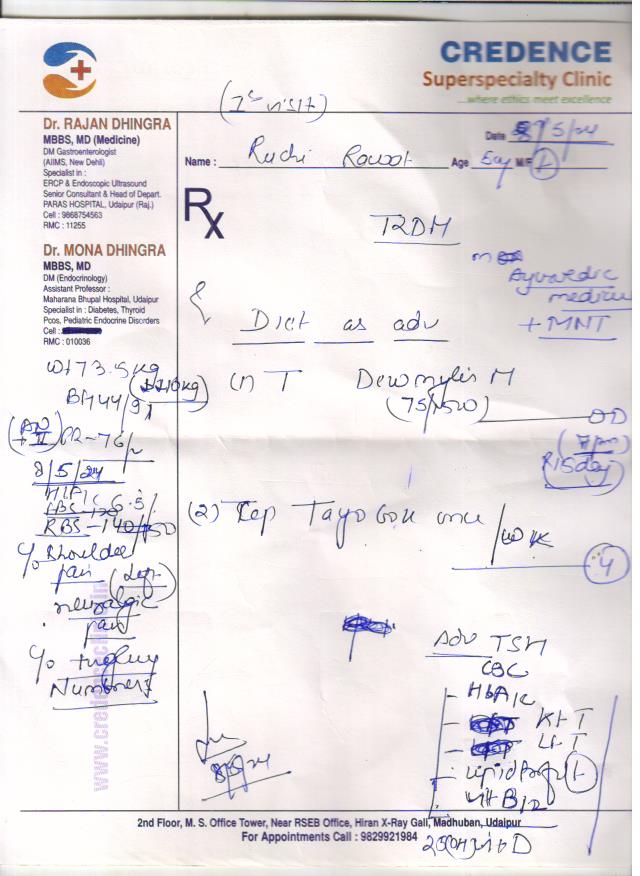 CREDENCE
Superspecialty Clinic
...where ethics meet excellence
(1st visit)
Dr. RAJAN DHINGRA
MBBS, MD (Medicine)
DM Gastroenterologist
(AIIMS, New Dehli)
Specialist in :
ERCP & Endoscopic Ultrasound
Senior Consultant & Head of Depart.
PARAS HOSPITAL, Udaipur (Raj.)
Cell : 9868754563
RMC : 11255
Dr. MONA DHINGRA
MBBS, MD
DM (Endocrinology)
Assistant Professor :
Maharana Bhupal Hospital, Udaipur
Specialist in : Diabetes, Thyroid
Pcos. Pediatric Endocrine Discrders
Cell :
RMC : 010036
Wt 73.5kg
PR-76/m
8/5/24
HbA1c 6.5%
RBS-140
c/o Shoulder
pain (Left)
neuralgic
pain
c/o
Numbness
www.credenceclinic.in
Date 8/5/24
Name : Ruchi Rawat Age M/F
Rx
T2DM
Ayurvedic
medicine
+ MNT
Diet as adv
(1) T M
OD
(2) Tayo 60K once
/wk
4
Adv TSH
CBC
HbA1c
KFT
LFT
Lipid profile
Vit B12
25(OH)vit D
8/5/24
2nd Floor, M. S. Office Tower, Near RSEB Office, Hiran X-Ray Gali, Madhuban, Udaipur
For Appointments Call : 9829921984